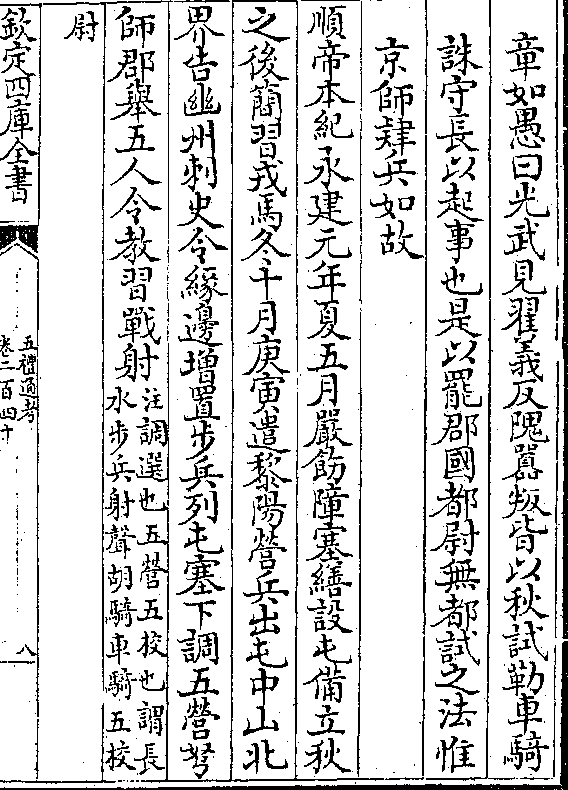 章如愚曰光武見翟義反隗囂叛皆以秋試勒車騎
誅守長以起事也是以罷郡國都尉無都試之法惟
京師肄兵如故
順帝本紀永建元年夏五月嚴飭障塞繕設屯備立秋
之後簡習戎馬冬十月庚寅遣黎陽營兵出屯中山北
界告幽州刺史令緣邊增置步兵列屯塞下調五營弩
師郡舉五人令教習戰射
注調選也五營五校也謂長
水步兵射聲胡騎車騎五校
尉
欽定四庫全書
五禮通考
卷二百四十
八